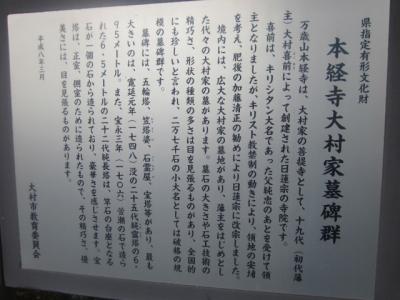 県指定有形文化財
本経寺大村家墓碑群
万歳山本経寺は、大村家の菩提寺として、十九代（初代藩
主）大村喜前によって創建された日蓮宗の寺院です。
喜前は、キリシタン大名であった父純忠のあとを受けて領
主となりましたが、キリスト教禁制の動きにより、領地の安堵
を考え、肥後の加藤清正の勧めにより日蓮宗に改宗しました。
境内には、広大な大村家の墓地があり、藩主をはじめとし
た代々の大村家の墓があります。墓石の大きさや石工技術の
精巧さ、形状の種類の多さは目を見張るものがあり、全国的
にも珍しいと言われ、二万七千石の小大名としては破格の規
模の墓碑群です。
墓碑には、五輪塔、笠塔婆、石霊屋、宝塔等があり、最も
大きいのは、寛延元年（一七四八）没の二十五代純富塔の6.
95メートル。また、宝永三年（一七〇六）
れた6.5メートルの二十二代純長塔は、竿石の台座となる
石が一個の石から造られており、豪華さを感じさせます。宝
塔は、正室、側室のために造られたもので、その精巧さ、優
美さには、目を見張るものがあります。
平成八年三月
大村市教育委員会